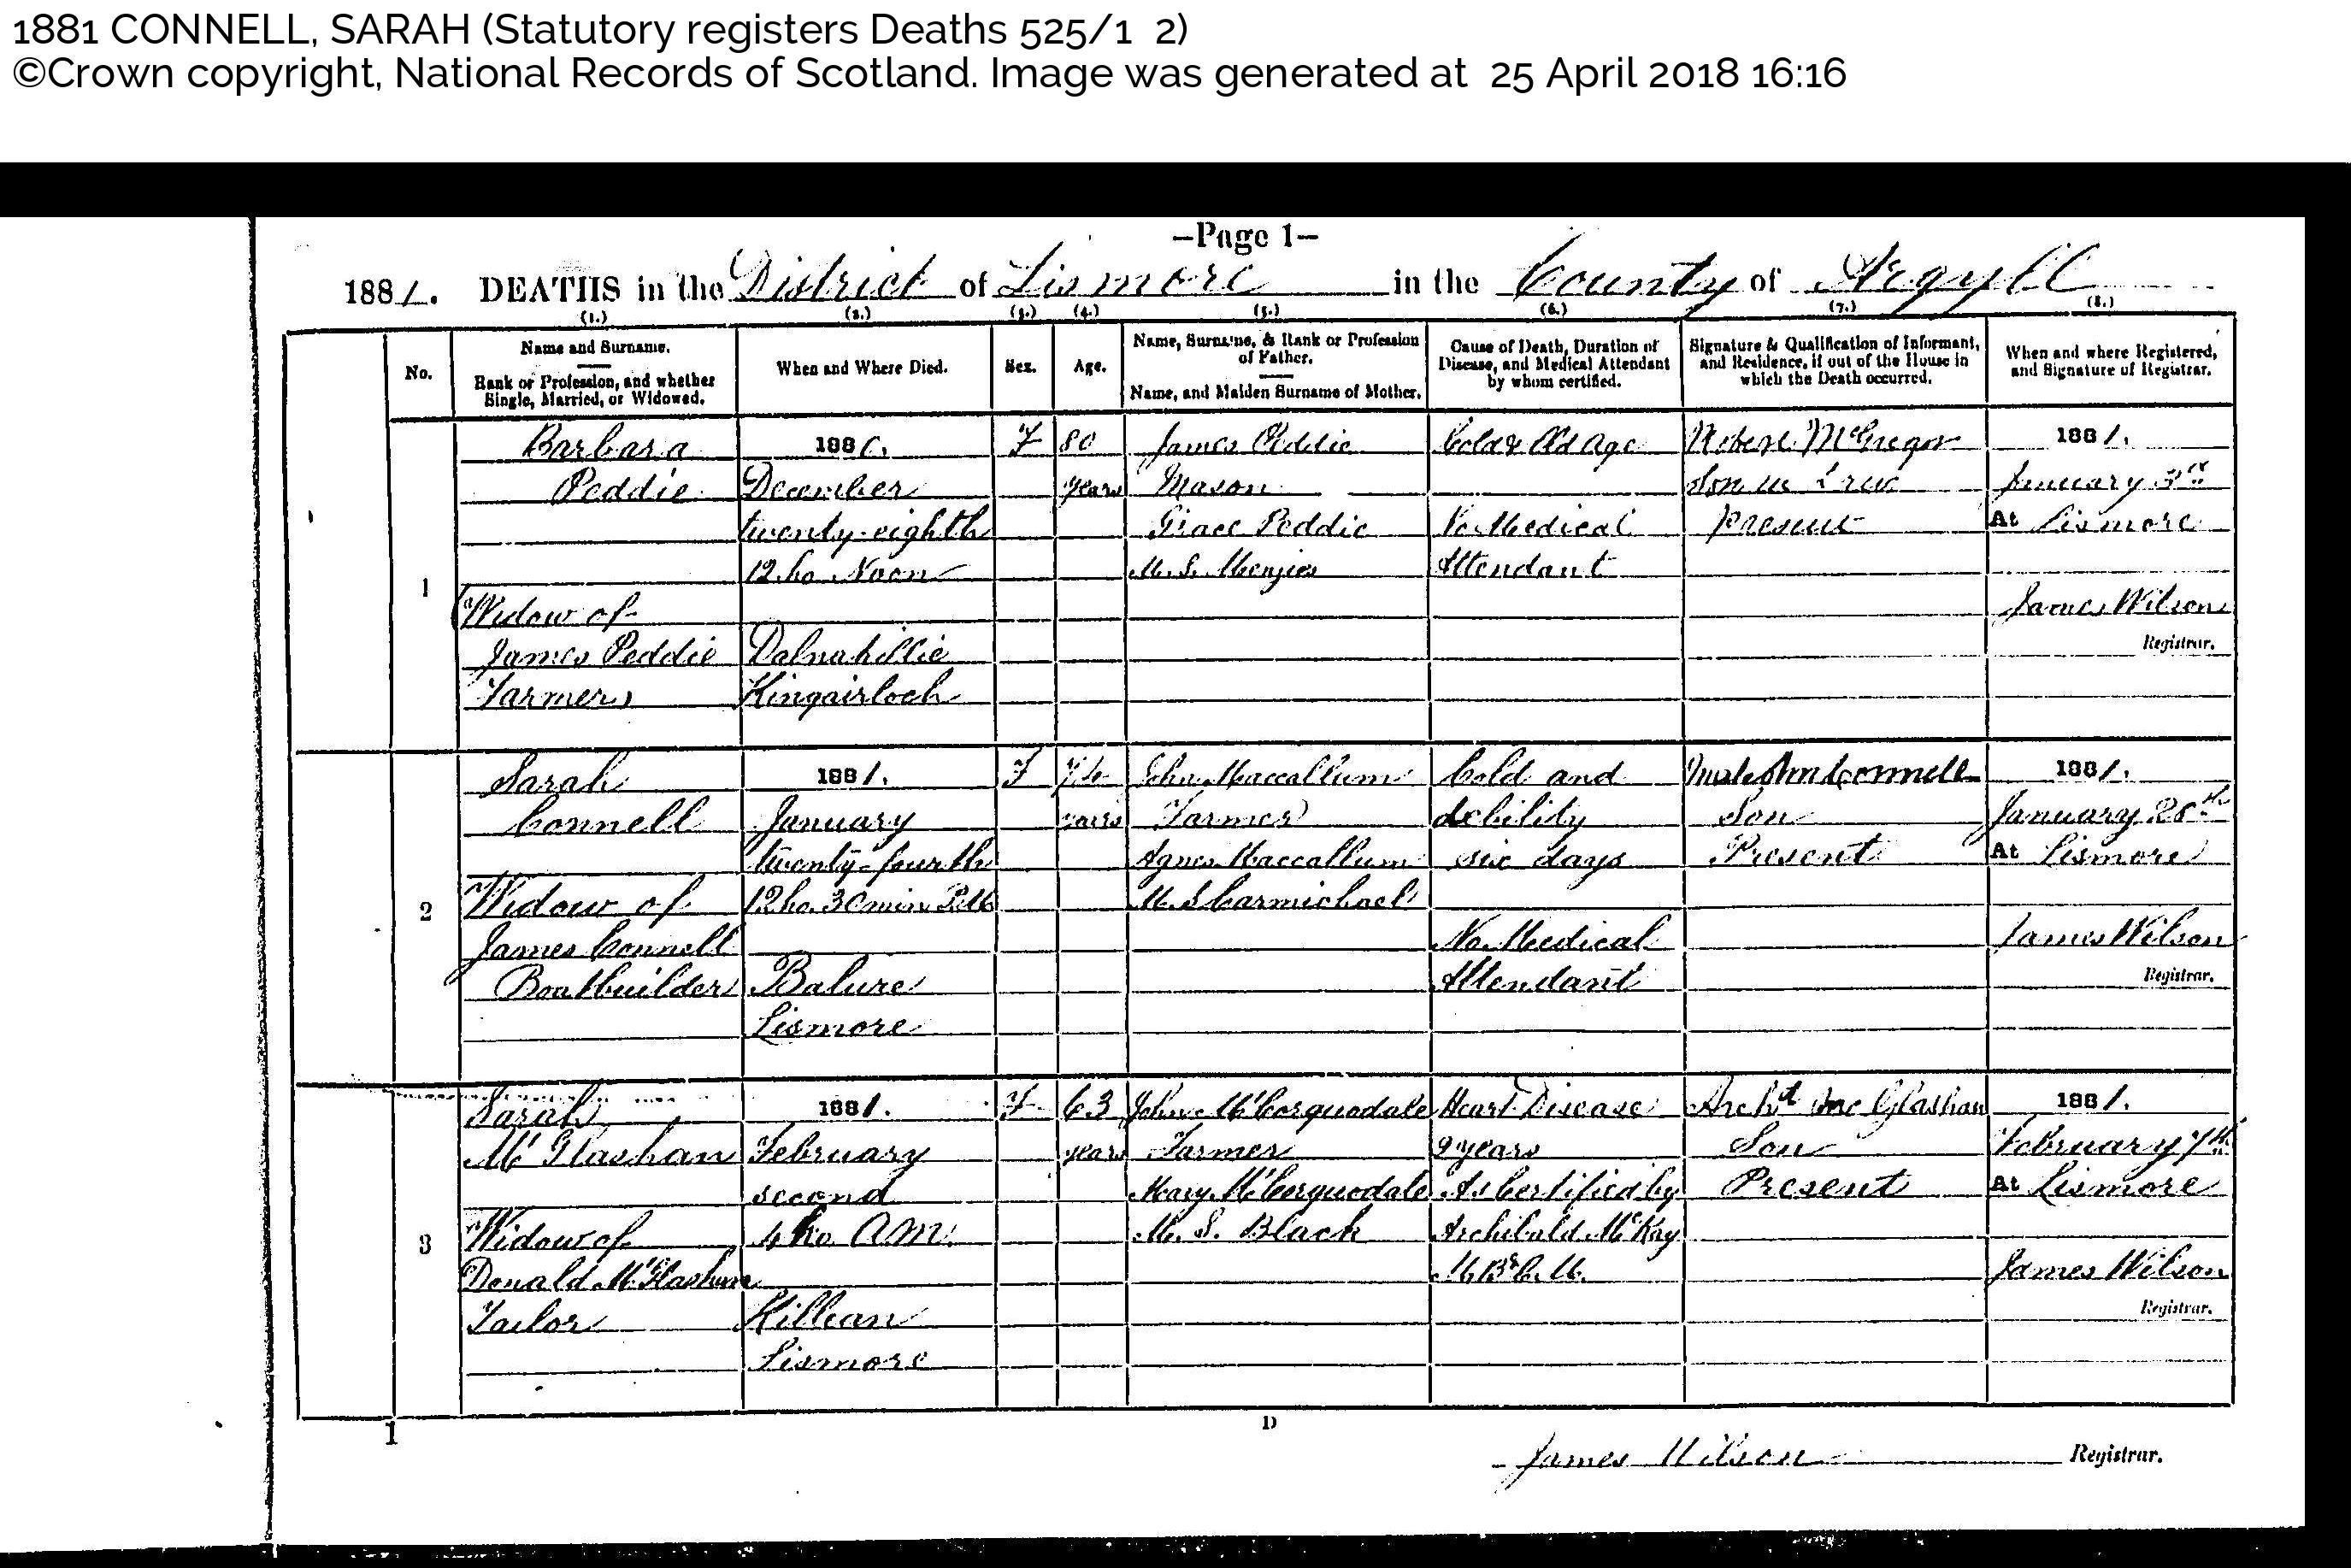 1881 CONNELL, SARAH (Statutory registers Deaths 525/1 2)
©Crown copyright, National Records of Scotland. Image was generated at 25 April 2018 16:16
—Page 1—
1881. DEATHS in the District of Lismore in the County of Argyll
(1.) (2.) (3.) (4.) (5.) (6.) (7.) (8.)
No.
Name and Surname.
Rank or Profession, and whether
Single, Married, or Widowed.
When and Where Died.
Sex.
Age.
Name, Surname, & Rank or Profession
of Father.
Name, and Maiden Surname of Mother.
Cause of Death, Duration of
Disease, and Medical Attendant
by whom certified.
Signature & Qualification of Informant,
and Residence, if out of the House in
which the Death occurred.
When and where Registered,
and Signature of Registrar.
1
Barbara
Peddie
Widow of
James Peddie
Farmer
1880.
December
twenty-eighth
12 ho. Noon
Dalnahillie
Kingairloch
F
80
years
James Peddie
Mason
Grace Peddie
M.S. Menzies
Cold & Old Age
No Medical
Attendant
Robert McGregor
Son in Law
Present
1881.
January
At Lismore
James Wilson
Registrar.
2
Sarah
Connell
Widow of
James Connell
Boatbuilder
1881.
January
twenty-fourth
12 ho. 30 min. P.M
Balure
Lismore
F
years
John Maccallum
Farmer
Agnes Maccallum
M.S Carmichael
Cold and
debility
six days
No Medical
Attendant
Malcolm Connell
Son
Present
1881.
January
At Lismore
James Wilson
Registrar.
3
Sarah
McGlashan
Widow of
Donald McGlashan
Tailor
1881.
February
second
4 ho. A.M.
Killean
Lismore
F
63
years
John McCorquodale
Farmer
Mary McCorquodale
M.S. Black
Heart Disease
9 years
As Certified by
Archibald McKay
M.B. & C.M.
Archd McGlashan
Son
Present
1881.
February 7th
At Lismore
James Wilson
Registrar.
1
D
James Wilson Registrar.